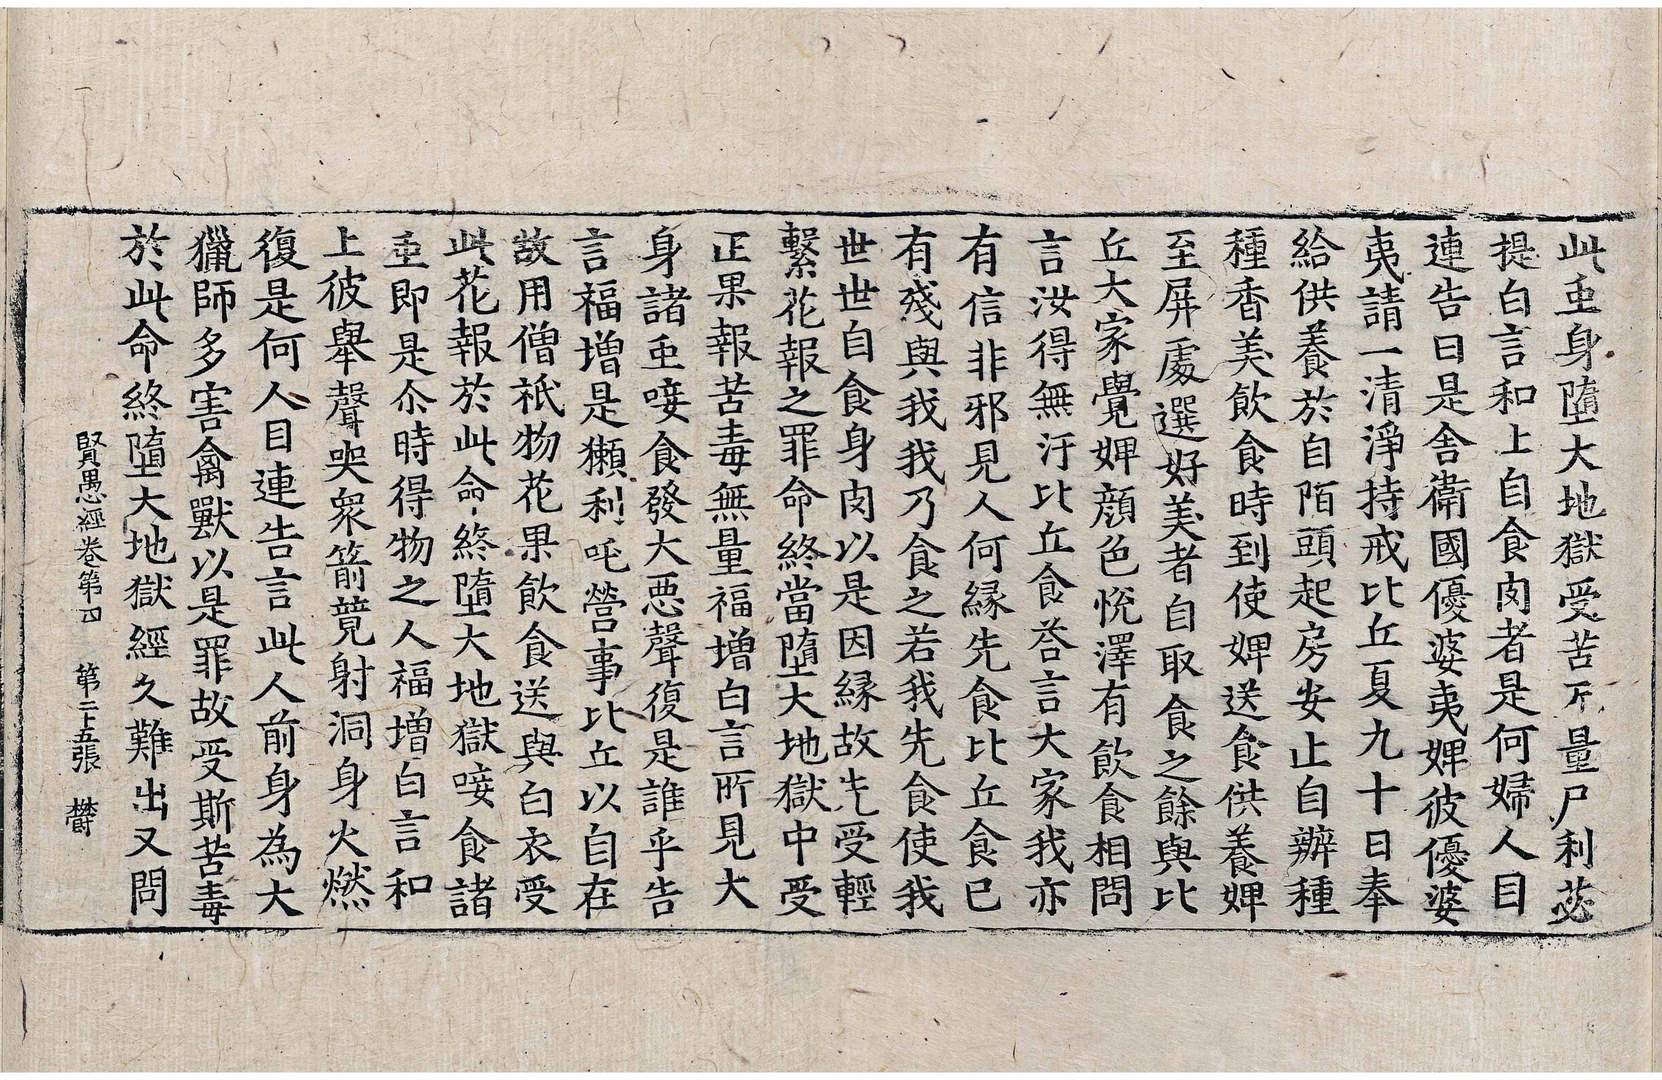 此虫身墮大地獄受苦不量尸利苾
提白言和上自食肉者是何婦人目
連告曰是舍衛國優婆夷婢彼優婆
夷請一清淨持戒比丘夏九十日奉
給供養於自陌頭起房安止自辦種
種香美飲食時到使婢送食供養婢
至屏處選好美者自取食之餘與比
丘大家覺婢顏色悅澤有飲食相問
言汝得無汙比丘食荅言大家我亦
有信非邪見人何緣先食比丘食已
有殘與我我乃食之若我先食使我
世世自食身肉以是因緣故先受輕
繫花報之罪命終當墮大地獄中受
正果報苦毒無量福增白言所見大
身諸虫唼食發大惡聲復是誰乎告
言福增是瀨利吒營事比丘以自在
故用僧祇物花果飲食送與白衣受
此花報於此命終墮大地獄唼食諸
虫即是尒時得物之人福增白言和
上彼舉聲哭衆箭競射洞身火燃
復是何人目連告言此人前身為大
獵師多害禽獸以是罪故受斯苦毒
於此命終墮大地獄經久難出又問
賢愚經卷第四　第二十五張　欝